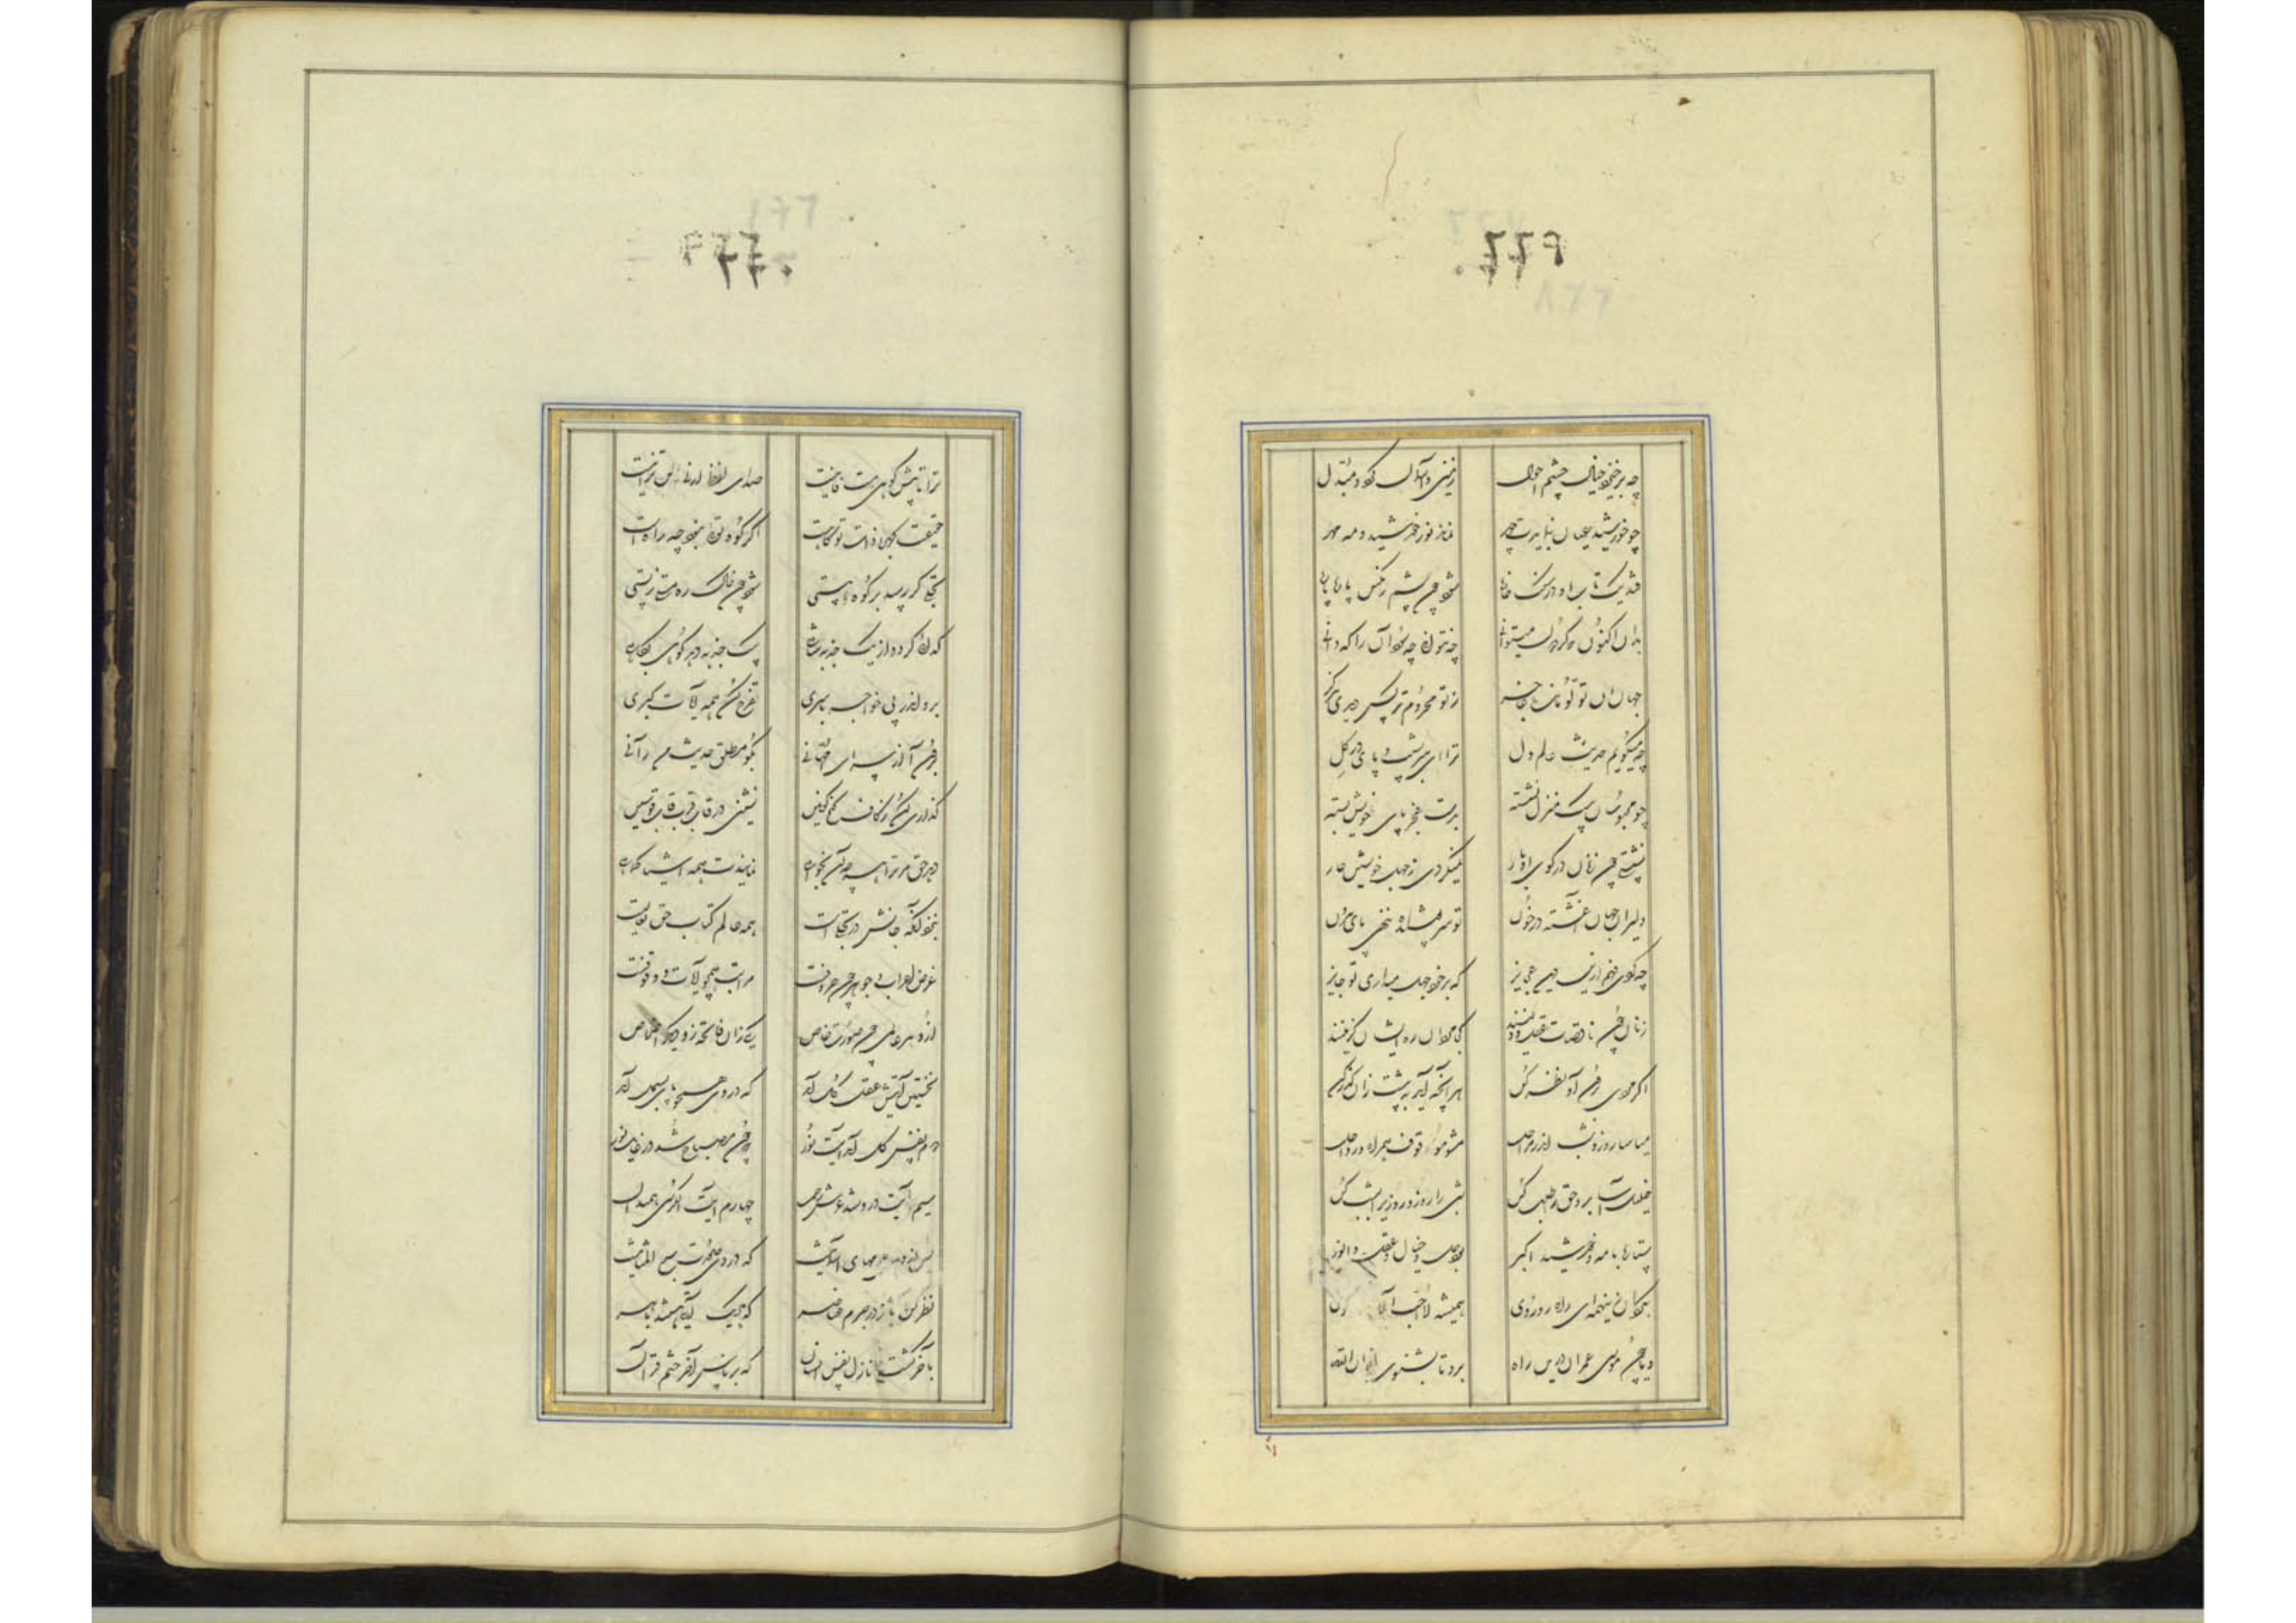 چو برخیزد خیال چشم احول زمین و آسمان گردد مبدل
چو خورشید عیان بنمایدت چهر نماند نور خورشید و مه و مهر
فتد یک تاب ازو در سنگ خارا شود چون پشم رنگین پاره پاره
بدان اکنون که کردن میتوانی چو نتوانی چه سود آن را که دانی
جهان آن تو و تو مانده عاجز ز تو محروم تر کس دیدی هرگز
چه میگویم حدیث عالم دل ترا ای سر نشیب و پای در گل
چو محبوسان بیک منزل نشسته بدست عجز پای خویش بسته
نشستی چون زنان در کوی ادبار نمیکردی ز جهل خویش عار
دلیران جهان آغشته در خون تو سرپوشیده ننهی پای بیرون
چه کردی فهم ازین دین عجایز که بر خود جهل میداری تو جایز
زنان چون ناقصات عقل و دینند کجا مردان ره ایشان گزینند
اگر مردی برون آی و نظر کن هر آنچه آید به پیشت زان گذر کن
میاسا روز و شب اندر مراحل مشو موقوف همراه و رواحل
خلیل آسا برو حق را طلب کن شبی را روز و روزی را بشب کن
ستاره با مه و خورشید اکبر بود حس و خیال و عقل انور
بگردان زین همه ای راه رو روی همیشه لا احب الآ
و یا چون موسی عمران درین راه برو تا بشنوی انی انا الله
ترا تا پیش کوه هستی باقیست صدای لفظ ارنی لن ترانیست
حقیقت کهربا ذات تو کاهست اگر کوه توئی نبود چه راه است
تجلی گر رسد بر کوه هستی شود چون خاک ره هستی ز پستی
گدائی گردد از یک جذبه شاهی بیک جذبه دهد کوهی بکاهی
برو اندر پی خواجه باسری تفرج کن همه آیات کبری
برون آ از سرای ام هانی بگو مطلق حدیث من رآنی
گذاری کن ز کاف کنج کونین نشین در قاف قرب قاب قوسین
دهد حق مر ترا هر چه آن بخواهی نمایندت همه اشیا کماهی
بنزد آنکه جانش در تجلی است همه عالم کتاب حق تعالیست
عرض اعراب و جوهر چون حروفست مراتب همچو آیات وقوفست
ازو هر عالمی چون سوره خاص یکی زان فاتحه زو دیگر اخلاص
نخستین آیتش عقل کل آمد که در وی همچو بای بسمل آمد
دوم نفس کل آمد آیت نور که چون مصباح شد در غایت نور
سیم آیت درو شد عرش رحمن چهارم آیت الکرسی همیدان
پس از وی جرمهای آسمانیست که در وی سوره سبع المثانیست
نظر کن باز در جرم عناصر که هر یک آیتی هستند باهر
بآخر گشت نازل نفس انسان که بر ناس آمد آخر ختم قرآن